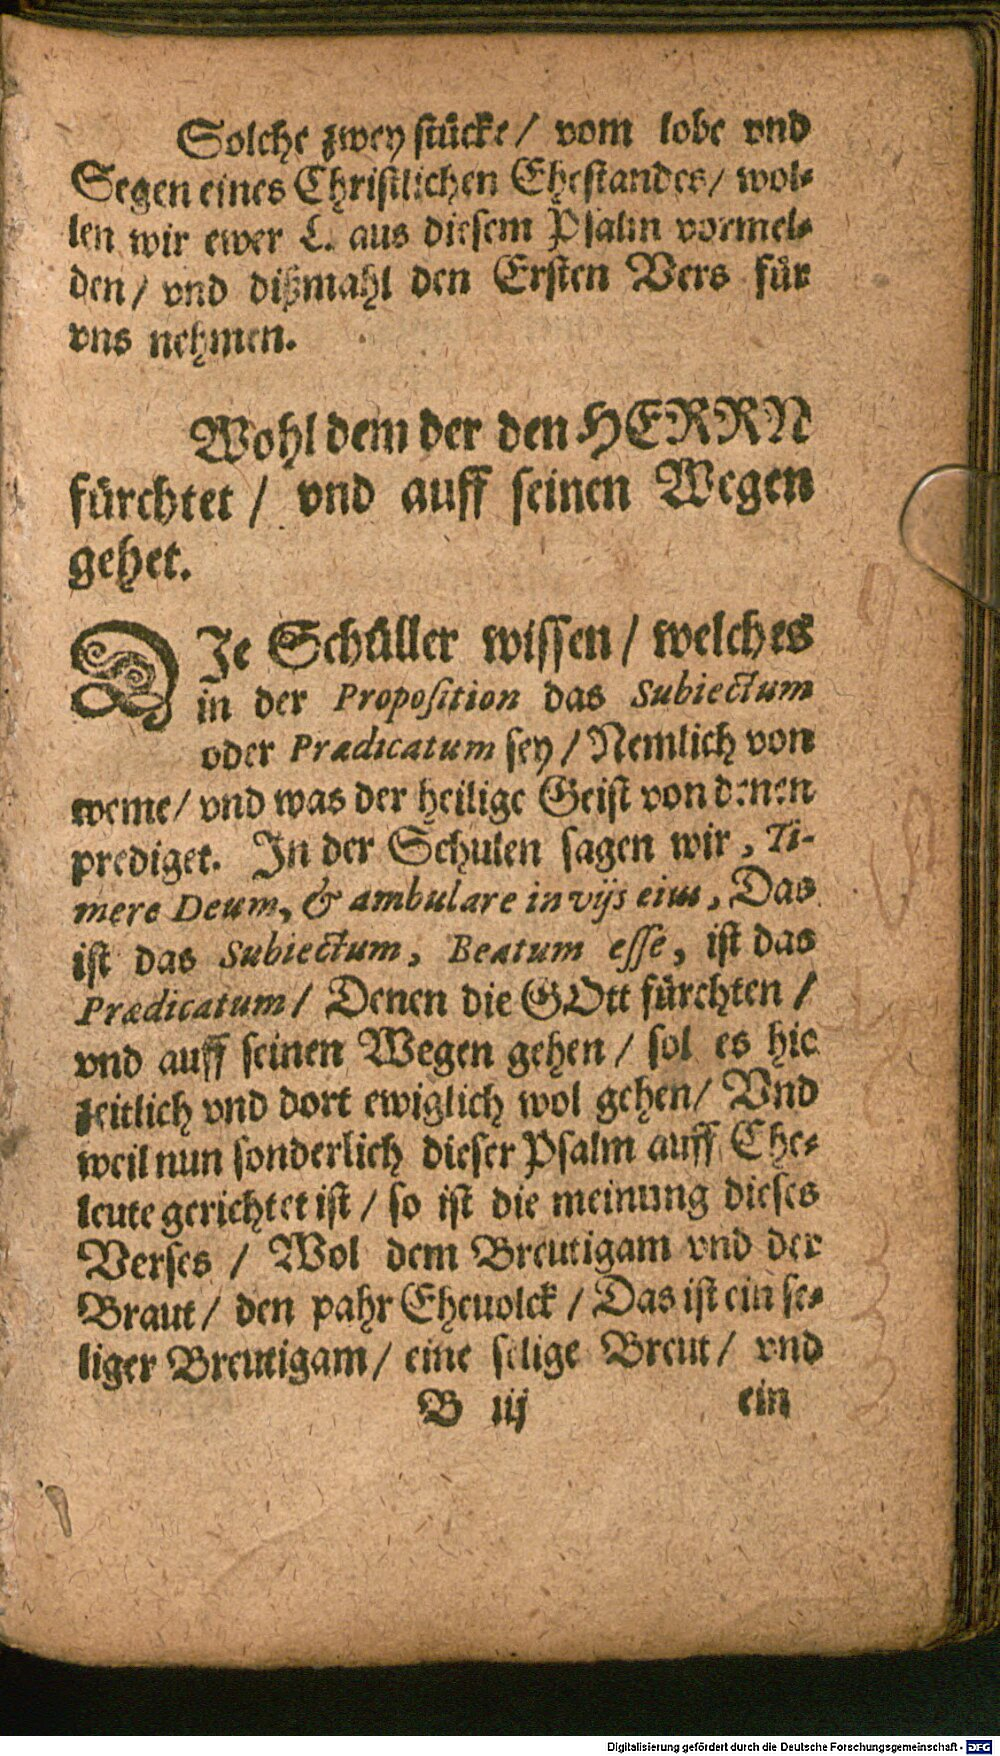 Solche zwey stücke / vom lobe vnd
Segen eines Christlichen Ehestandes / wol-
len wir ewer L. aus diesem Psalm vormel-
den / vnd dißmahl den Ersten Vers für
vns nehmen.
Wohl dem der den HERRN
fürchtet / vnd auff seinen Wegen
gehet.
DIe Schüller wissen / welches
in der Proposition das Subiectum
oder Prædicatum sey / Nemlich von
weme / vnd was der heilige Geist von denen
prediget. In der Schulen sagen wir, Ti-
mere Deum, & ambulare in vijs eius, Das
ist das Subiectum, Beatum esse, ist das
Prædicatum / Denen die GOtt fürchten /
vnd auff seinen Wegen gehen / sol es hie
zeitlich vnd dort ewiglich wol gehen / Vnd
weil nun sonderlich dieser Psalm auff Ehe-
leute gerichtet ist / so ist die meinung dieses
Verses / Wol dem Breutigam vnd der
Braut / den pahr Ehevolck / Das ist ein se-
liger Breutigam / eine selige Breut / vnd
B iij ein
Digitalisierung gefördert durch die Deutsche Forschungsgemeinschaft - DFG